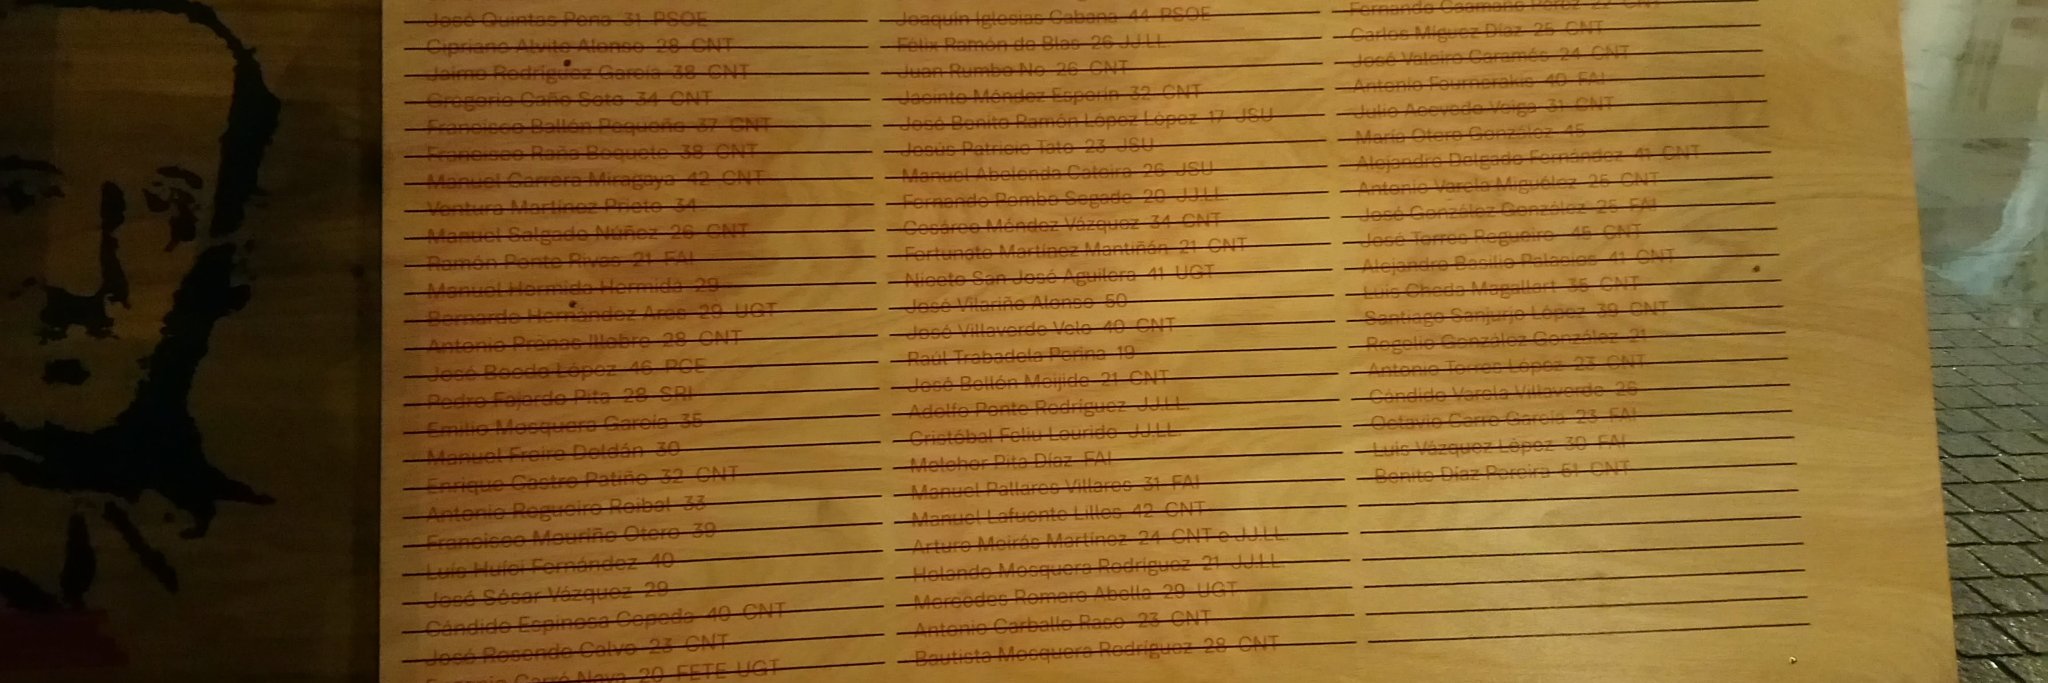 José Quintas Pena 31 PSOE
Cipriano Alvito Alonso 28 CNT
Jaime Rodríguez García 38 CNT
Gregorio Caño Soto 34 CNT
Francisco Ballón Pequeño 37 CNT
Francisco Raña Boquete 38 CNT
Manuel Carrera Miragaya 42 CNT
Ventura Martínez Prieto 34
Manuel Salgado Núñez 26 CNT
Ramón Ponte Rivas 21 FAI
Manuel Hermida Hermida 29
Bernardo Hernández Ares 29 UGT
Antonio Prenas Illobre 28 CNT
José Boedo López 46 PCE
Pedro Fajardo Pita 28 SRI
Emilio Mosquera García 35
Manuel Freire Doldán 30
Enrique Castro Patiño 32 CNT
Antonio Regueiro Roibal 33
Francisco Mouriño Otero 39
Luís Huici Fernández 40
José Sésar Vázquez 29
Cándido Espinosa Cepeda 40 CNT
José Rosende Calvo 23 CNT
Carré Naya 20 FETE-UGT
Joaquín Iglesias Cabana 44 PSOE
Félix Ramón de Blas 26 JJ.LL.
Juan Rumbo No 26 CNT
Jacinto Méndez Esporín 32 CNT
José Benito Ramón López López 17 JSU
Jesús Patricio Tato 23 JSU
Manuel Abelenda Catoira 26 JSU
Fernando Pombo Segade 20 JJ.LL.
Cesáreo Méndez Vázquez 34 CNT
Fortunato Martínez Mantiñán 21 CNT
Niceto San José Aguilera 41 UGT
José Vilariño Alonso 50
José Villaverde Velo 40 CNT
Raúl Trabadela Porina 19
José Bellón Meijide 21 CNT
Adolfo Ponte Rodríguez JJ.LL.
Cristóbal Feliu Lourido JJ.LL.
Melchor Pita Díaz FAI
Manuel Pallares Villares 31 FAI
Manuel Lafuente Lilles 42 CNT
Arturo Meirás Martínez 24 CNT e JJ.LL.
Helando Mosquera Rodríguez 21 JJ.LL.
Mercedes Romero Abella 29 UGT
Antonio Carballo Raso 23 CNT
Bautista Mosquera Rodríguez 28 CNT
Fernando Caamaño Pérez 22 CNT
Carlos Míguez Díaz 25 CNT
José Valeiro Caramés 24 CNT
Antonio Fournerakis 40 FAI
Julio Acevedo Veiga 31 CNT
María Otero González 45
Alejandro Delgado Fernández 41 CNT
Antonio Varela Miguélez 25 CNT
José González González 25 FAI
José Torres Regueiro 45 CNT
Alejandro Basilio Palacios 41 CNT
Luis Cheda Magallart 35 CNT
Santiago Sanjurjo López 39 CNT
Rogelio González González 21
Antonio Torres López 23 CNT
Cándido Varela Villaverde 26
Octavio Carro García 23 FAI
Luis Vázquez López 30 FAI
Benito Díaz Pereira 51 CNT